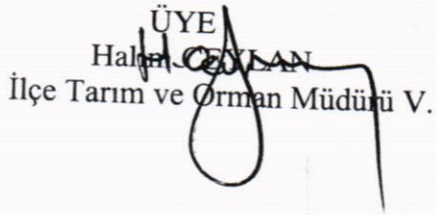 ÜYE
Halim CEYLAN
İlçe Tarım ve Orman Müdürü V.